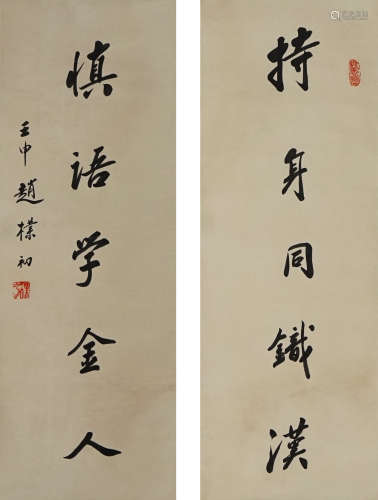 持身同鐡漢
慎语学金人
壬申趙樸初